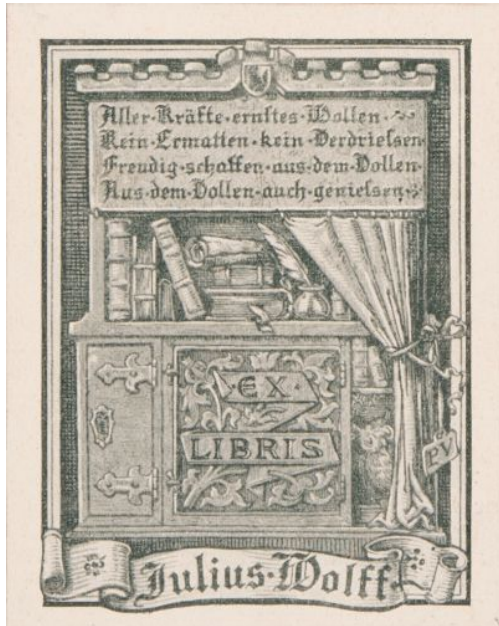 Aller·Kräfte·ernstes·Wollen·
Kein·Ermatten·kein·Verdriessen
Freudig·schaffen·aus·dem·Vollen·
Aus·dem·Vollen·auch·geniessen·
EX
LIBRIS
PV
Julius·Wolff·